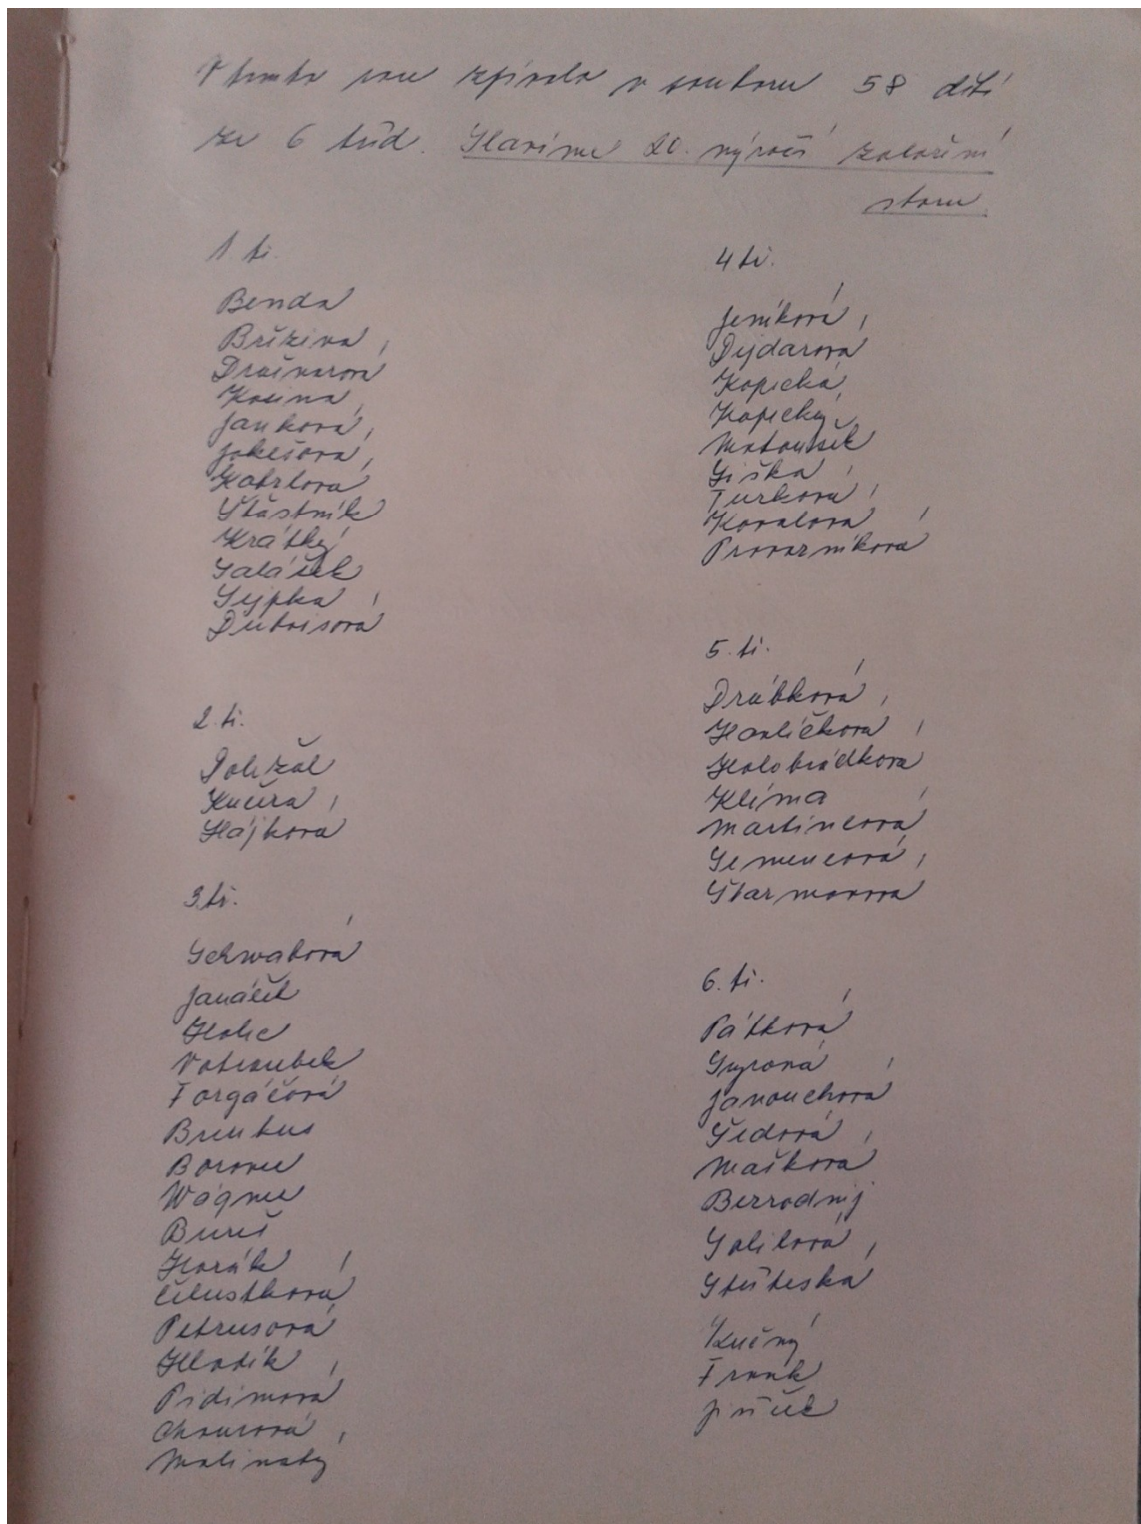 V tomto roce zpívalo v souboru 58 dětí
ze 6 tříd. Slavíme 20. výročí založení
sboru.
1 tř.
Benda
Březina
Dračínarová
Kosina
Janková
Jokešová
Kabrlová
Šťastník
Krátký
Salášek
Sejpka
Duboisová
2. tř.
Doležal
Kučera
Hájková
3 tř.
Schwabová
Janáček
Holec
Votroubek
Forgáčová
Bruthus
Borovec
Wágner
Bureš
Horák
Čelustková
Petrusová
Hladík
Pidimová
Chourová
Malinský
4 tř.
Jeníková
Dejdarová
Kopecká
Kopecký
Matoušek
Šiška
Turková
Kovalová
Provazníková
5. tř.
Drábková
Havlíčková
Holobrádková
Klíma
Martincová
Semencová
Štarmanová
6. tř.
Pátková
Syrová
Janouchová
Šedová
Mašková
Bezrodnij
Salilová
Stříteská
Kučný
Frank
Jiříček